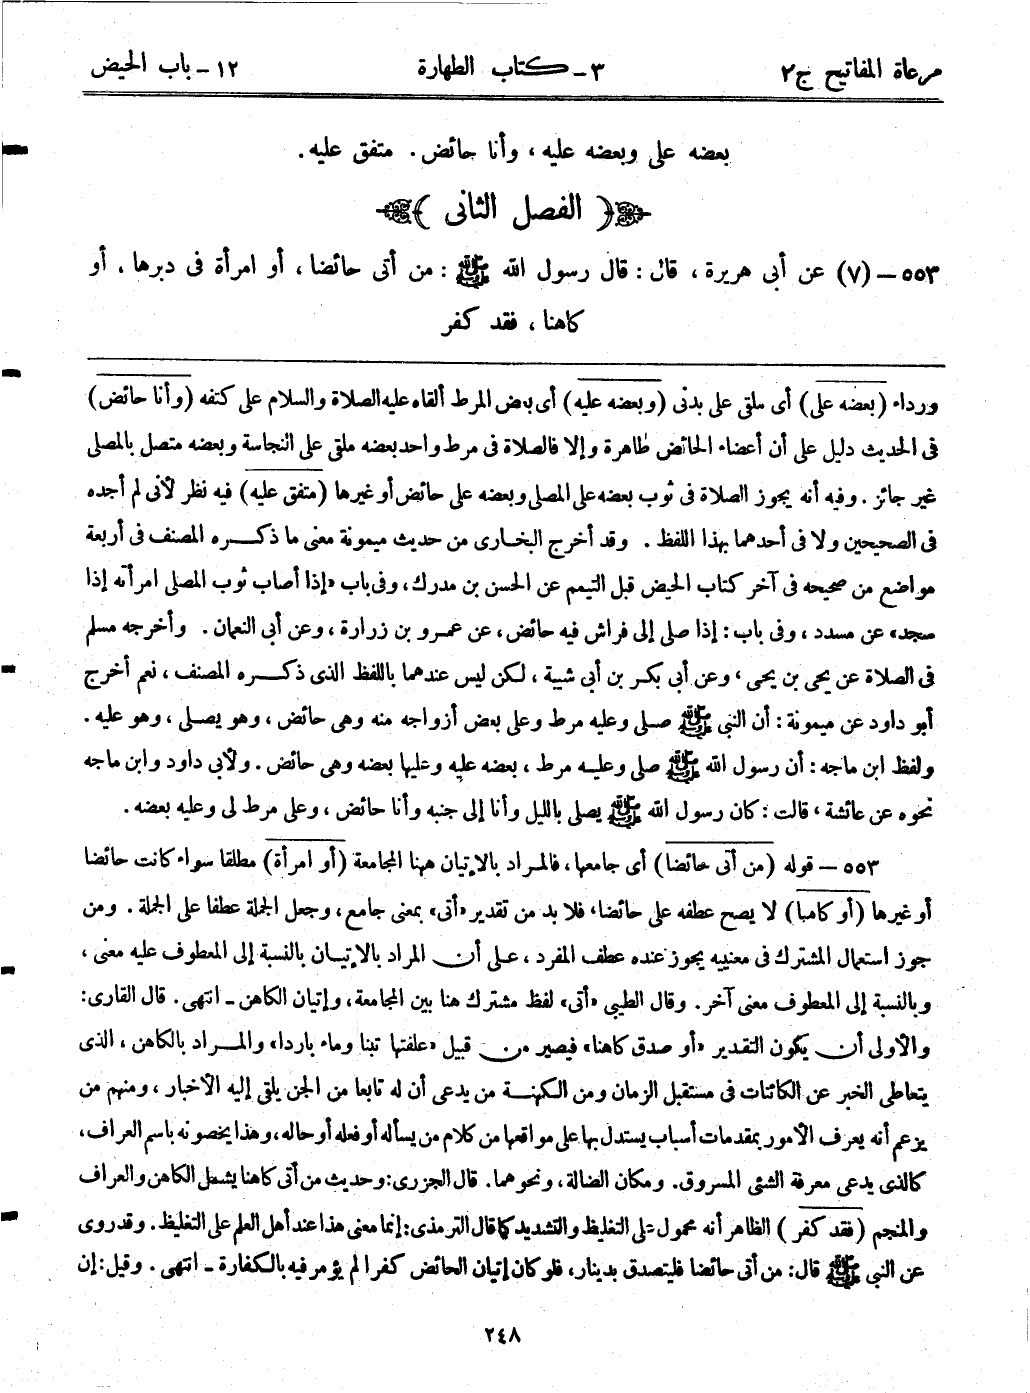 مرعاة المفاتيح ج٢ ٣ ـ كتاب الطهارة ١٢ ـ باب الحيض
بعضه على وبعضه عليه ، وأنا حائض . متفق عليه .
﴿ الفصل الثانى ﴾
٥٥٣ – (٧) عن أبى هريرة ، قال : قال رسول الله ﷺ : من أتى حائضا ، أو امرأة فى دبرها ، أو
كاهنا ، فقد كفر
ورداء (بعضه على) أى ملقى على بدنى (وبعضه عليه) أى بعض المرط ألقاه عليه الصلاة والسلام على كتفه (وأنا حائض)
فى الحديث دليل على أن أعضاء الحائض طاهرة وإلا فالصلاة فى مرط واحد بعضه ملقى على النجاسة وبعضه متصل بالمصلى
غير جائز . وفيه أنه يجوز الصلاة فى ثوب بعضه على المصلى وبعضه على حائض أو غيرها (متفق عليه) فيه نظر لأنى لم أجده
فى الصحيحين ولا فى أحدهما بهذا اللفظ . وقد أخرج البخارى من حديث ميمونة معنى ما ذكره المصنف فى أربعة
مواضع من صحيحه فى آخر كتاب الحيض قبل التيمم عن الحسن بن مدرك ، وفى باب «إذا أصاب ثوب المصلى امرأته إذا
سجد» عن مسدد ، وفى باب : إذا صلى إلى فراش فيه حائض ، عن عمرو بن زرارة ، وعن أبى النعمان . وأخرجه مسلم
فى الصلاة عن يحى بن يحى ، وعن أبى بكر بن أبى شيبة ، لكن ليس عندهما باللفظ الذى ذكره المصنف ، نعم أخرج
أبو داود عن ميمونة : أن النبى ﷺ صلى وعليه مرط وعلى بعض أزواجه منه وهى حائض ، وهو يصلى ، وهو عليه .
ولفظ ابن ماجه : أن رسول الله ﷺ صلى وعليه مرط ، بعضه عليه وعليها بعضه وهى حائض . ولأبى داود وابن ماجه
نحوه عن عائشة ، قالت : كان رسول الله ﷺ يصلى بالليل وأنا إلى جنبه وأنا حائض ، وعلى مرط لى وعليه بعضه .
٥٥٣ – قوله (من أتى حائضا) أى جامعها ، فالمراد بالإتيان ههنا المجامعة (أو امرأة) مطلقا سواء كانت حائضا
أو غيرها (أو كاهنا) لا يصح عطفه على حائضا ، فلا بد من تقدير «أتى» بمعنى جامع ، وجعل الجملة عطفا على الجملة . ومن
جوز استعمال المشترك فى معنييه يجوز عنده عطف المفرد ، على أن المراد بالإتيان بالنسبة إلى المعطوف عليه معنى ،
وبالنسبة إلى المعطوف معنى آخر . وقال الطيبى «أتى» لفظ مشترك هنا بين المجامعة ، وإتيان الكاهن ـ انتهى . قال القارى :
والأولى أن يكون التقدير «أو صدق كاهنا» فيصير من قبيل «علفتها تبنا وماء باردا» والمراد بالكاهن ، الذى
يتعاطى الخبر عن الكائنات فى مستقبل الزمان ومن الكهنة من يدعى أن له تابعا من الجن يلقى إليه الأخبار ، ومنهم من
يزعم أنه يعرف الأمور بمقدمات أسباب يستدل بها على مواقعها من كلام من يسأله أو فعله أو حاله ، وهذا يخصونه باسم العراف ،
كالذى يدعى معرفة الشئى المسروق . ومكان الضالة ، ونحوهما . قال الجزرى : وحديث من أتى كاهنا يشمل الكاهن والعراف
والمنجم (فقد كفر) الظاهر أنه محمول على التغليظ والتشديد كما قال الترمذى : إنما معنى هذا عند أهل العلم على التغليظ . وقد روى
عن النبى ﷺ قال : من أتى حائضا فليتصدق بدينار ، فلو كان إتيان الحائض كفرا لم يؤمر فيه بالكفارة ـ انتهى . وقيل : إن
٢٤٨